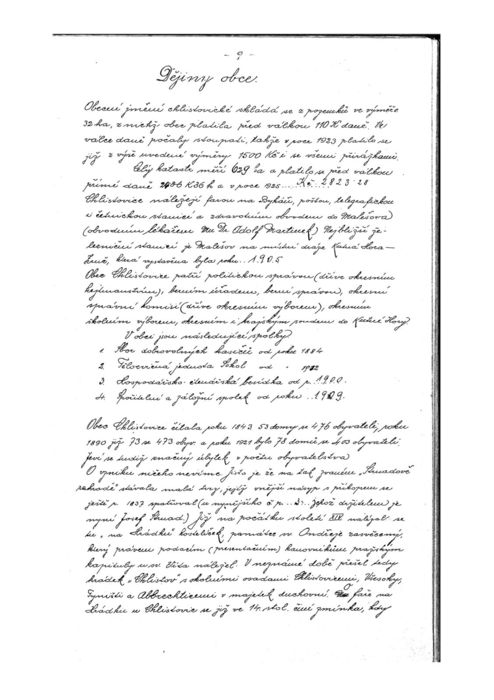 - 9 -
Dějiny obce.
Obecní jmění chlistovické skládá se z pozemků ve výměře
32 ha, z nichž obec platila před válkou 110 K daně. Ve
válce daně počaly stoupati, takže v roce 1923 platilo se
již z výše uvedené výměry 1500 Kč i se všemi přirážkami.
Celý katastr měří 629 ha a platilo se před válkou
přímé daně K36 h a v roce 925 ... Kč 2823·28
Chlistovice náležejí farou na Sudějov, poštou, telegrafickou
i četnickou stanicí a zdravotním obvodem do Malešova
(obvodním lékařem MU Dr Adolf Martinek) Nejbližší že-
lezniční stanicí je Malešov na místní dráze Kutná Hora-
Zruč, která vystavěna byla roku ..1905
Obec Chlistovice patří politickou správou (dříve okresním
hejtmanstvím), berním úřadem, berní správou, okresní
správní komisí (dříve okresním výborem), okresním
školním výborem, okresním i krajským soudem do Kutné Hory
V obci jsou následující spolky:
1. Sbor dobrovolných hasičů od roku 1884
2. Tělocvičná jednota Sokol od "
3. Hospodářsko-čtenářská besídka od r. 1900.
4. Spořitelní a záložní spolek od roku ..1909.
Obec Chlistovice čítala roku 1843 53 domy se 476 obyvateli, roku
1890 již 73 se 473 obyv. a roku 1921 bylo 78 domů se 403 obyvateli.
Jeví se tudíž značný úbytek v počtu obyvatelstva
O vzniku ničeho nevíme. Jisto je že na tak zvaném „Šmadově
zahradě" stávala malá tvrz, jejíž vnější násyp s příkopem se
ještě r. 1837 spatřoval (u nynějšího č. p. ..3.. jehož držitelem je
nyní Josef Šmad) Již na počátku století XIV náležel se
tu, „na Hrádku" kostelíček, památce sv. Ondřeje zasvěcený,
který právem podacím (presentačním) kanovníkům pražským
kapituly u sv. Víta náležel. V neznámé době přešel tedy
hrádek „Chlistov" s okolními osadami Chlistovicemi, Všesoky,
Tyništi a Albrechticemi v majetek duchovní. O faře na
Hrádku u Chlistovic se již ve 14. stol. činí zmínka, kdy